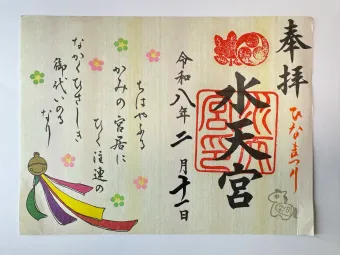 奉拝
ひなまつり
水天宮
令和八年二月十一日
ちはやふる
かみの宮居に
ひく注連の
なかくひさしき
御代いのる
なり